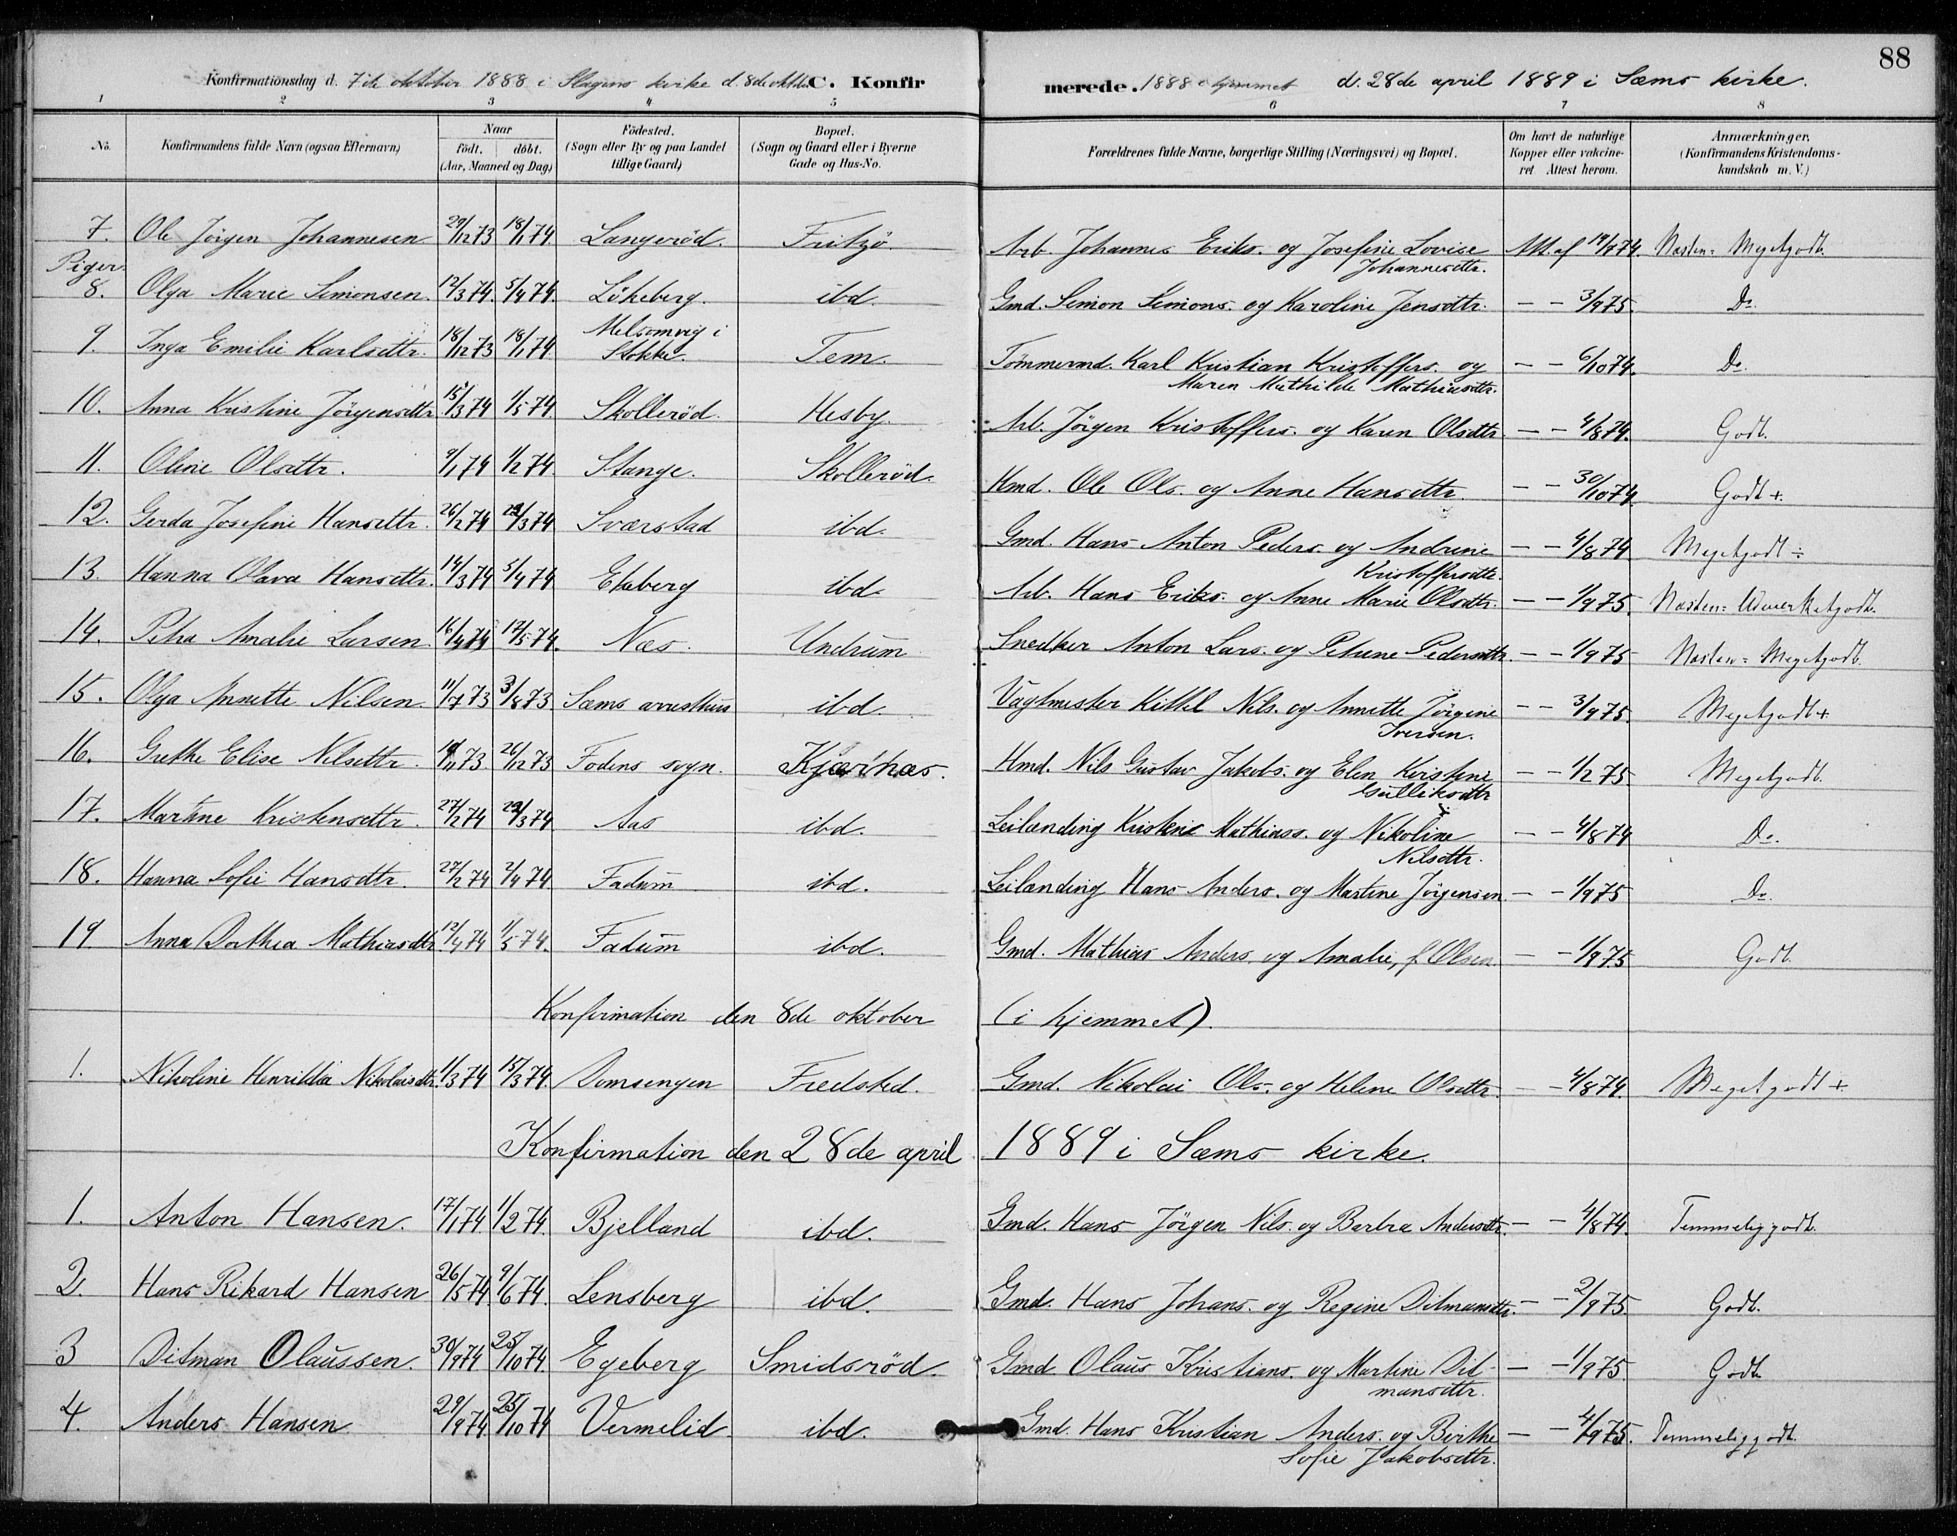 88
Konfirmationsdag d. 7de oktober 1888 i Slagens kirke d. 8de oktbr. C. Konfirmerede. 1888 i hjemmet d. 28de april 1889 i Sæms kirke.
1 2 3 4 5 6 7 8
No. Konfirmandens fulde Navn (ogsaa Efternavn) Naar født. døbt. (Aar, Maaned og Dag) Födested. (Sogn eller By og paa Landet tillige Gaard) Bopæl. (Sogn og Gaard eller i Byerne Gade og Hus-No. Forældrenes fulde Navne, borgerlige Stilling (Næringsvei) og Bopæl. Om havt de naturlige Kopper eller vakcineret. Attest herom. Anmærkninger. (Konfirmandens Kristendomskundskab m. V.)
7. Ole Jörgen Johannesen 29/12 73 18/1 74 Langeröd. Fritzö. Arb. Johannes Eriks. og Josefine Lovise Johannesdtr. Att. af 14/9 74. Næsten = Megetgodt.
Piger.
8. Olga Marie Simonsen. 12/3 74. 5/4 74. Lökeberg. ibd. Gmd. Simon Simons. og Karoline Jensdtr. — — 3/9 75. Do.
9. Inga Emilie Karlsdtr. 18/12 73 18/1 74 Melsomvig i Stokke. Tem. Tömmermd. Karl Kristian Kristoffers. og Maren Mathilde Mathiasdtr. — — 6/10 74. Do.
10. Anna Kristine Jörgensdtr. 15/3 74 1/5 74. Skolleröd. Hesby. Arb. Jörgen Kristoffers. og Karen Olsdtr. — — 4/8 74. Godt.
11. Oline Olsdtr. 9/1 74 1/2 74. Stange. Skolleröd. Hmd. Ole Ols. og Anne Hansdtr. — — 30/10 74. Godt +.
12. Gerda Josefine Hansdtr. 26/2 74 29/3 74 Sværstad ibd. Gmd. Hans Anton Peders. og Andrine Kristoffersdtr. — — 4/8 74 Megetgodt ÷
13. Hanna Olava Hansdtr. 14/3 74 5/4 74 Ekeberg ibd. Arb. Hans Eriks. og Anne Marie Olsdtr. — — 1/9 75. Næsten = Udmerketgodt.
14. Petra Amalie Larsen. 16/4 74 14/5 74. Næs. Undrum Snedker Anton Lars. og Petrine Pedersdtr. — — 1/9 75 Næsten = Megetgodt.
15. Olga Annette Nilsen. 11/7 73 3/8 73 Sæms arresthus ibd. Vagtmester Kittil Nils. og Annette Jörgine Iversen. — — 3/9 75. Megetgodt +
16. Grethe Elise Nilsdtr. 19/11 73 26/12 73 Fodens sogn. Kjærnæs. Hmd. Nils Gustav Jakobs. og Elen Kristine Gulliksdtr — — 1/2 75. Megetgodt.
17. Martine Kristensdtr. 27/2 74 29/3 74 Aas ibd. Leilænding Kristen Mathiass. og Nikoline Nilsdtr. — — 4/8 74 Do.
18. Hanna Sofie Hansdtr. 27/2 74 2/4 74 Fadum ibd. Leilænding Hans Anders. og Martine Jörgensen — — 1/9 75 Do.
19 Anna Dorthea Mathiasdtr. 12/4 74 1/5 74. Fadum ibd. Gmd. Mathias Anders. og Amalie, f. Olsen. — — 1/9 75 Godt.
Konfirmation den 8de oktober (i hjemmet).
1. Nikoline Henrikka Nikolaisdtr. 1/3 74 15/3 74 Domsengen Fredsted. Gmd. Nikolai Ols. og Helene Olsdtr. — — 4/8 74. Megetgodt +
Konfirmation den 28de april 1889 i Sæms kirke.
1. Anton Hansen. 17/1 74. 1/2 74. Bjelland ibd. Gmd. Hans Jörgen Nils. og Barbra Andersdtr. — — 4/8 74. Temmelig godt.
2. Hans Rikard Hansen 26/5 74. 9/6 74. Lensberg ibd. Gmd. Hans Johans. og Regine Ditmansdtr. — — 2/9 75. Godt.
3 Ditman Olaussen. 30/9 74 25/10 74. Egeberg Smidsröd. Gmd. Olaus Kristians. og Martine Ditmansdtr. — — 1/9 75. Godt
4. Anders Hansen 29/9 74. 25/10 74 Vermelid ibd. Gmd. Hans Kristian Anders. og Birthe Sofie Jakobsdtr. — — 4/9 75. Temmelig godt.